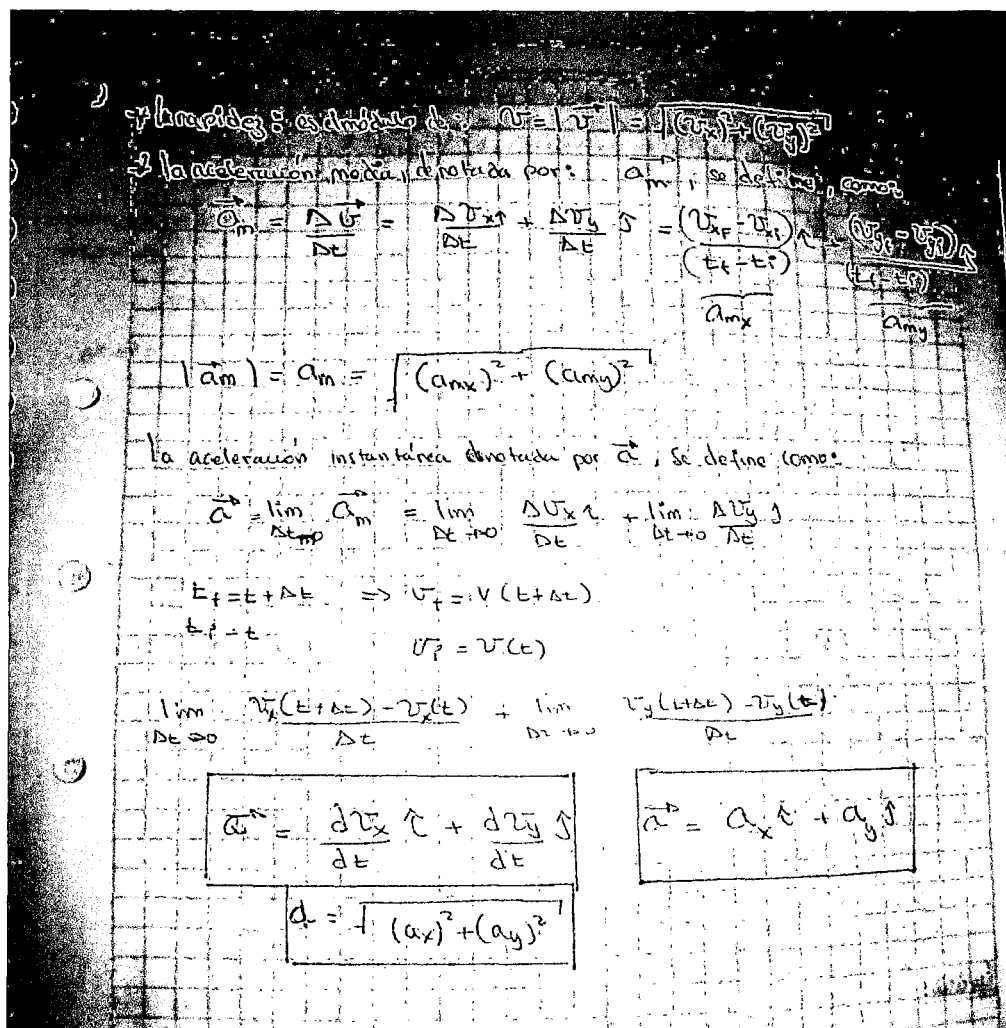 → la rapidez: es el módulo de: v = |v⃗| = √((vx)² + (vy)²)
→ la aceleración media, denotada por: a⃗m, se define, como:
a⃗m = Δv⃗/Δt = Δvx/Δt î + Δvy/Δt ĵ = (vxf - vxi)/(tf - ti) î + (vyf - vyi)/(tf - ti) ĵ
amx amy
|a⃗m| = am = √((amx)² + (amy)²)
la aceleración instantánea denotada por a⃗, se define como:
a⃗ = lim Δt→0 a⃗m = lim Δt→0 Δvx/Δt î + lim Δt→0 Δvy/Δt ĵ
tf = t + Δt => vf = v(t+Δt)
ti = t
vi = v(t)
lim Δt→0 (vx(t+Δt) - vx(t))/Δt + lim Δt→0 (vy(t+Δt) - vy(t))/Δt
a⃗ = dvx/dt î + dvy/dt ĵ
a⃗ = ax î + ay ĵ
a = √((ax)² + (ay)²)